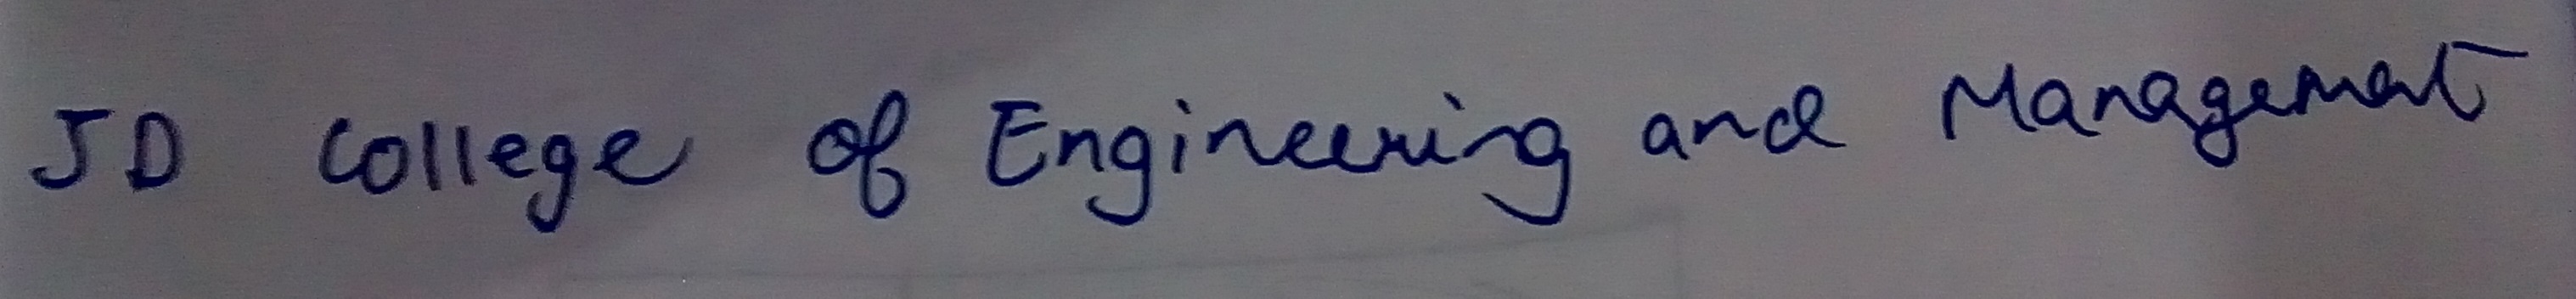 JD College of Engineering and Management